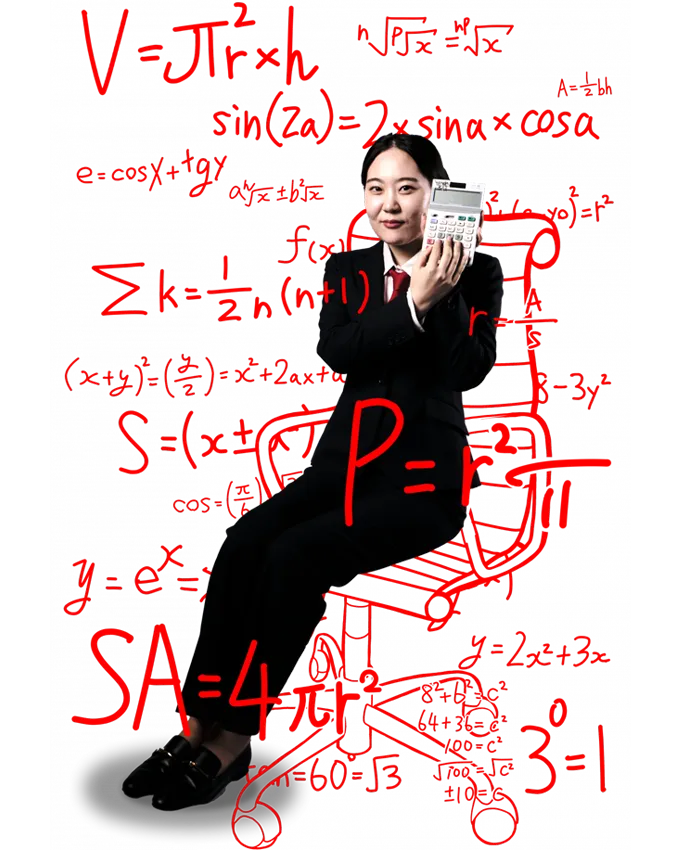 V=πr²×h
ⁿ√ᵖ√x = ⁿᵖ√x
A=½bh
sin(2a)=2×sina×cosa
e=cosx+tgy
aⁿ√x ± b²√x
)²+( -yo)²=r²
f(x)
Σk=1/2 n(n+1)
r=A/s
(x+y)²=(y/2)=x²+2ax+a
8-3y²
S=(x±a²)
P=r²π
cos=(π/6)
y=eˣ=
SA=4πr²
y=2x²+3x
8²+6²=c²
64+36=c²
100=c²
√100=√c²
±10=c
3⁰=1
=60°=√3